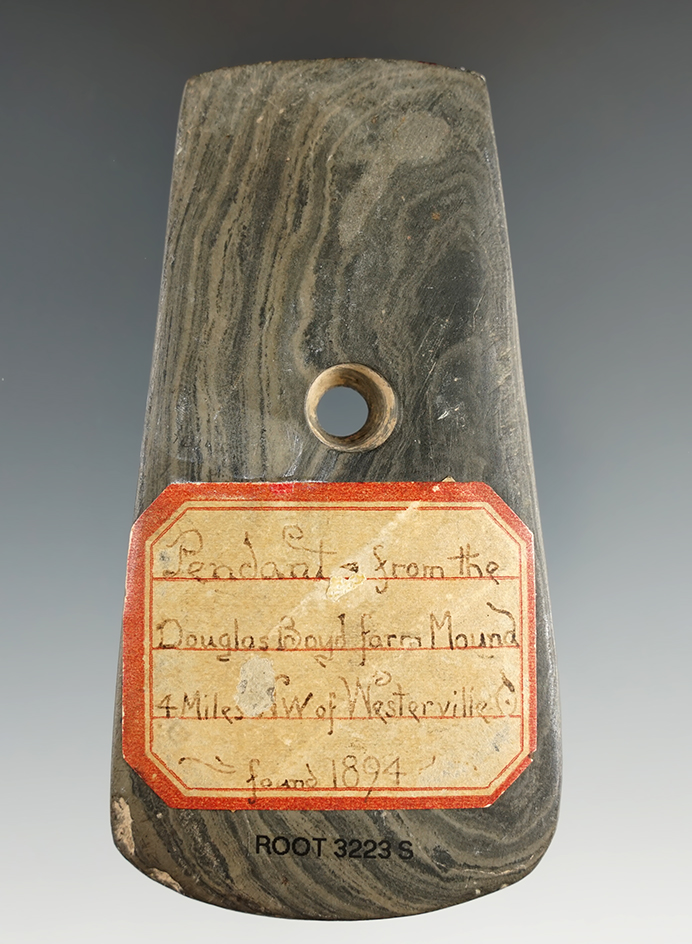 Pendant - from the
Douglas Boyd farm Mound
4 Miles NW of Westerville O.
found 1894
ROOT 3223 S